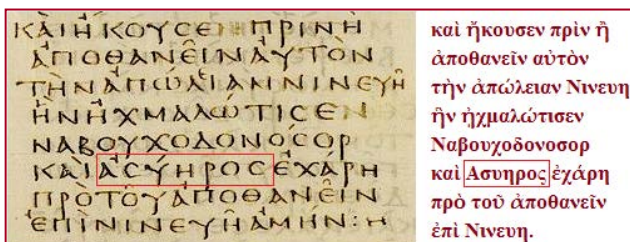 ΚΑΙΗΚΟΥCΕΝΠΡΙΝΗ
ΑΠΟΘΑΝΕΙΝΑΥΤΟΝ
ΤΗΝΑΠΩΛΙΑΝΝΙΝΕΥΗ
ΗΝΗΧΜΑΛΩΤΙCΕΝ
ΝΑΒΟΥΧΟΔΟΝΟCΟΡ
ΚΑΙΑCΥΗΡΟCΕΧΑΡΗ
ΠΡΟΤΟΥΑΠΟΘΑΝΕΙΝ
ΕΠΙΝΙΝΕΥΗΑΜΗΝ:
καὶ ἤκουσεν πρὶν ἢ
ἀποθανεῖν αὐτὸν
τὴν ἀπώλειαν Νινευη
ἣν ᾐχμαλώτισεν
Ναβουχοδονοσορ
καὶ Ασυηρος ἐχάρη
πρὸ τοῦ ἀποθανεῖν
ἐπὶ Νινευη.